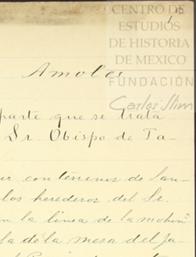 CENTRO DE
ESTUDIOS
DE HISTORIA
DE MEXICO
FUNDACIÓN
Carlos Slim
Amoles
parte que se trata
Sr. Obispo de Ta-
con terrenos de
los herederos del Sr.
la linea de la
la de la mesa del